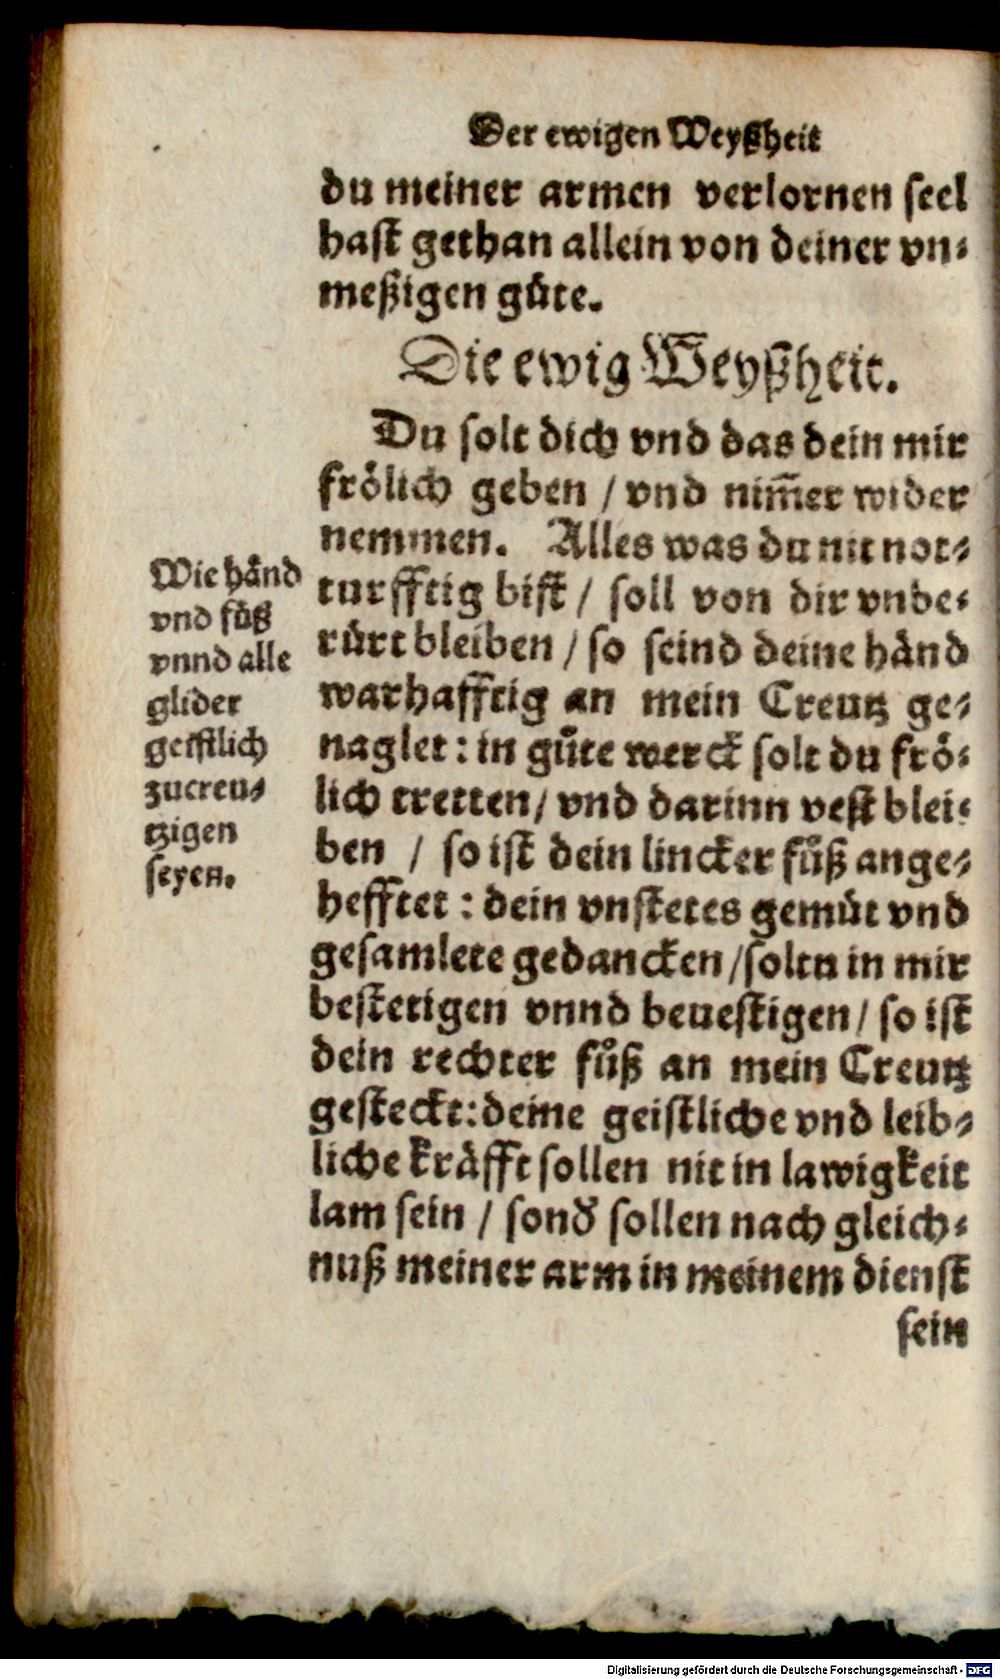 Der ewigen Weyßheit
du meiner armen verlornen seel
hast gethan allein von deiner vn⸗
meßigen güte.
Die ewig Weyßheit.
Du solt dich vnd das dein mir
frölich geben / vnd nim̃er wider
nemmen. Alles was du nit not⸗
turfftig bist / soll von dir vnbe⸗
rürt bleiben / so seind deine händ
warhafftig an mein Creutz ge⸗
naglet: in gůte werck solt du frö⸗
lich tretten / vnd darinn vest blei⸗
ben / so ist dein lincker fůß ange⸗
hefftet: dein vnstetes gemüt vnd
gesamlete gedancken / soltu in mir
bestetigen vnnd beuestigen / so ist
dein rechter fůß an mein Creutz
gesteckt: deine geistliche vnd leib⸗
liche kräfft sollen nit in lawigkeit
lam sein / sond̕ sollen nach gleich⸗
nuß meiner arm in meinem dienst
sein
Wie händ
vnd füß
vnnd alle
glider
geistlich
zucreu⸗
tzigen
seyen.
Digitalisierung gefördert durch die Deutsche Forschungsgemeinschaft - DFG